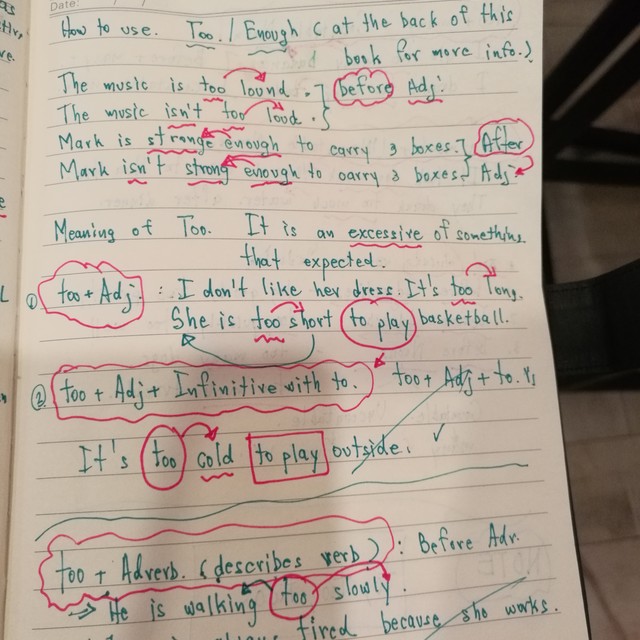 Date:
How to use. Too. / Enough ( at the back of this
book for more info.)
The music is too lound. before Adj.
The music isn't too loud.
Mark is stronge enough to carry 3 boxes. After
Mark isn't strong enough to carry 3 boxes. Adj
Meaning of Too. It is an excessive of something
that expected.
① too + Adj. : I don't like her dress. It's too long.
She is too short to play basketball.
② too + Adj + Infinitive with to. too + Adj + to. V1
It's too cold to play outside. ✓
too + Adverb. (describes verb) : Before Adv.
→ He is walking too slowly.
tired because she works.